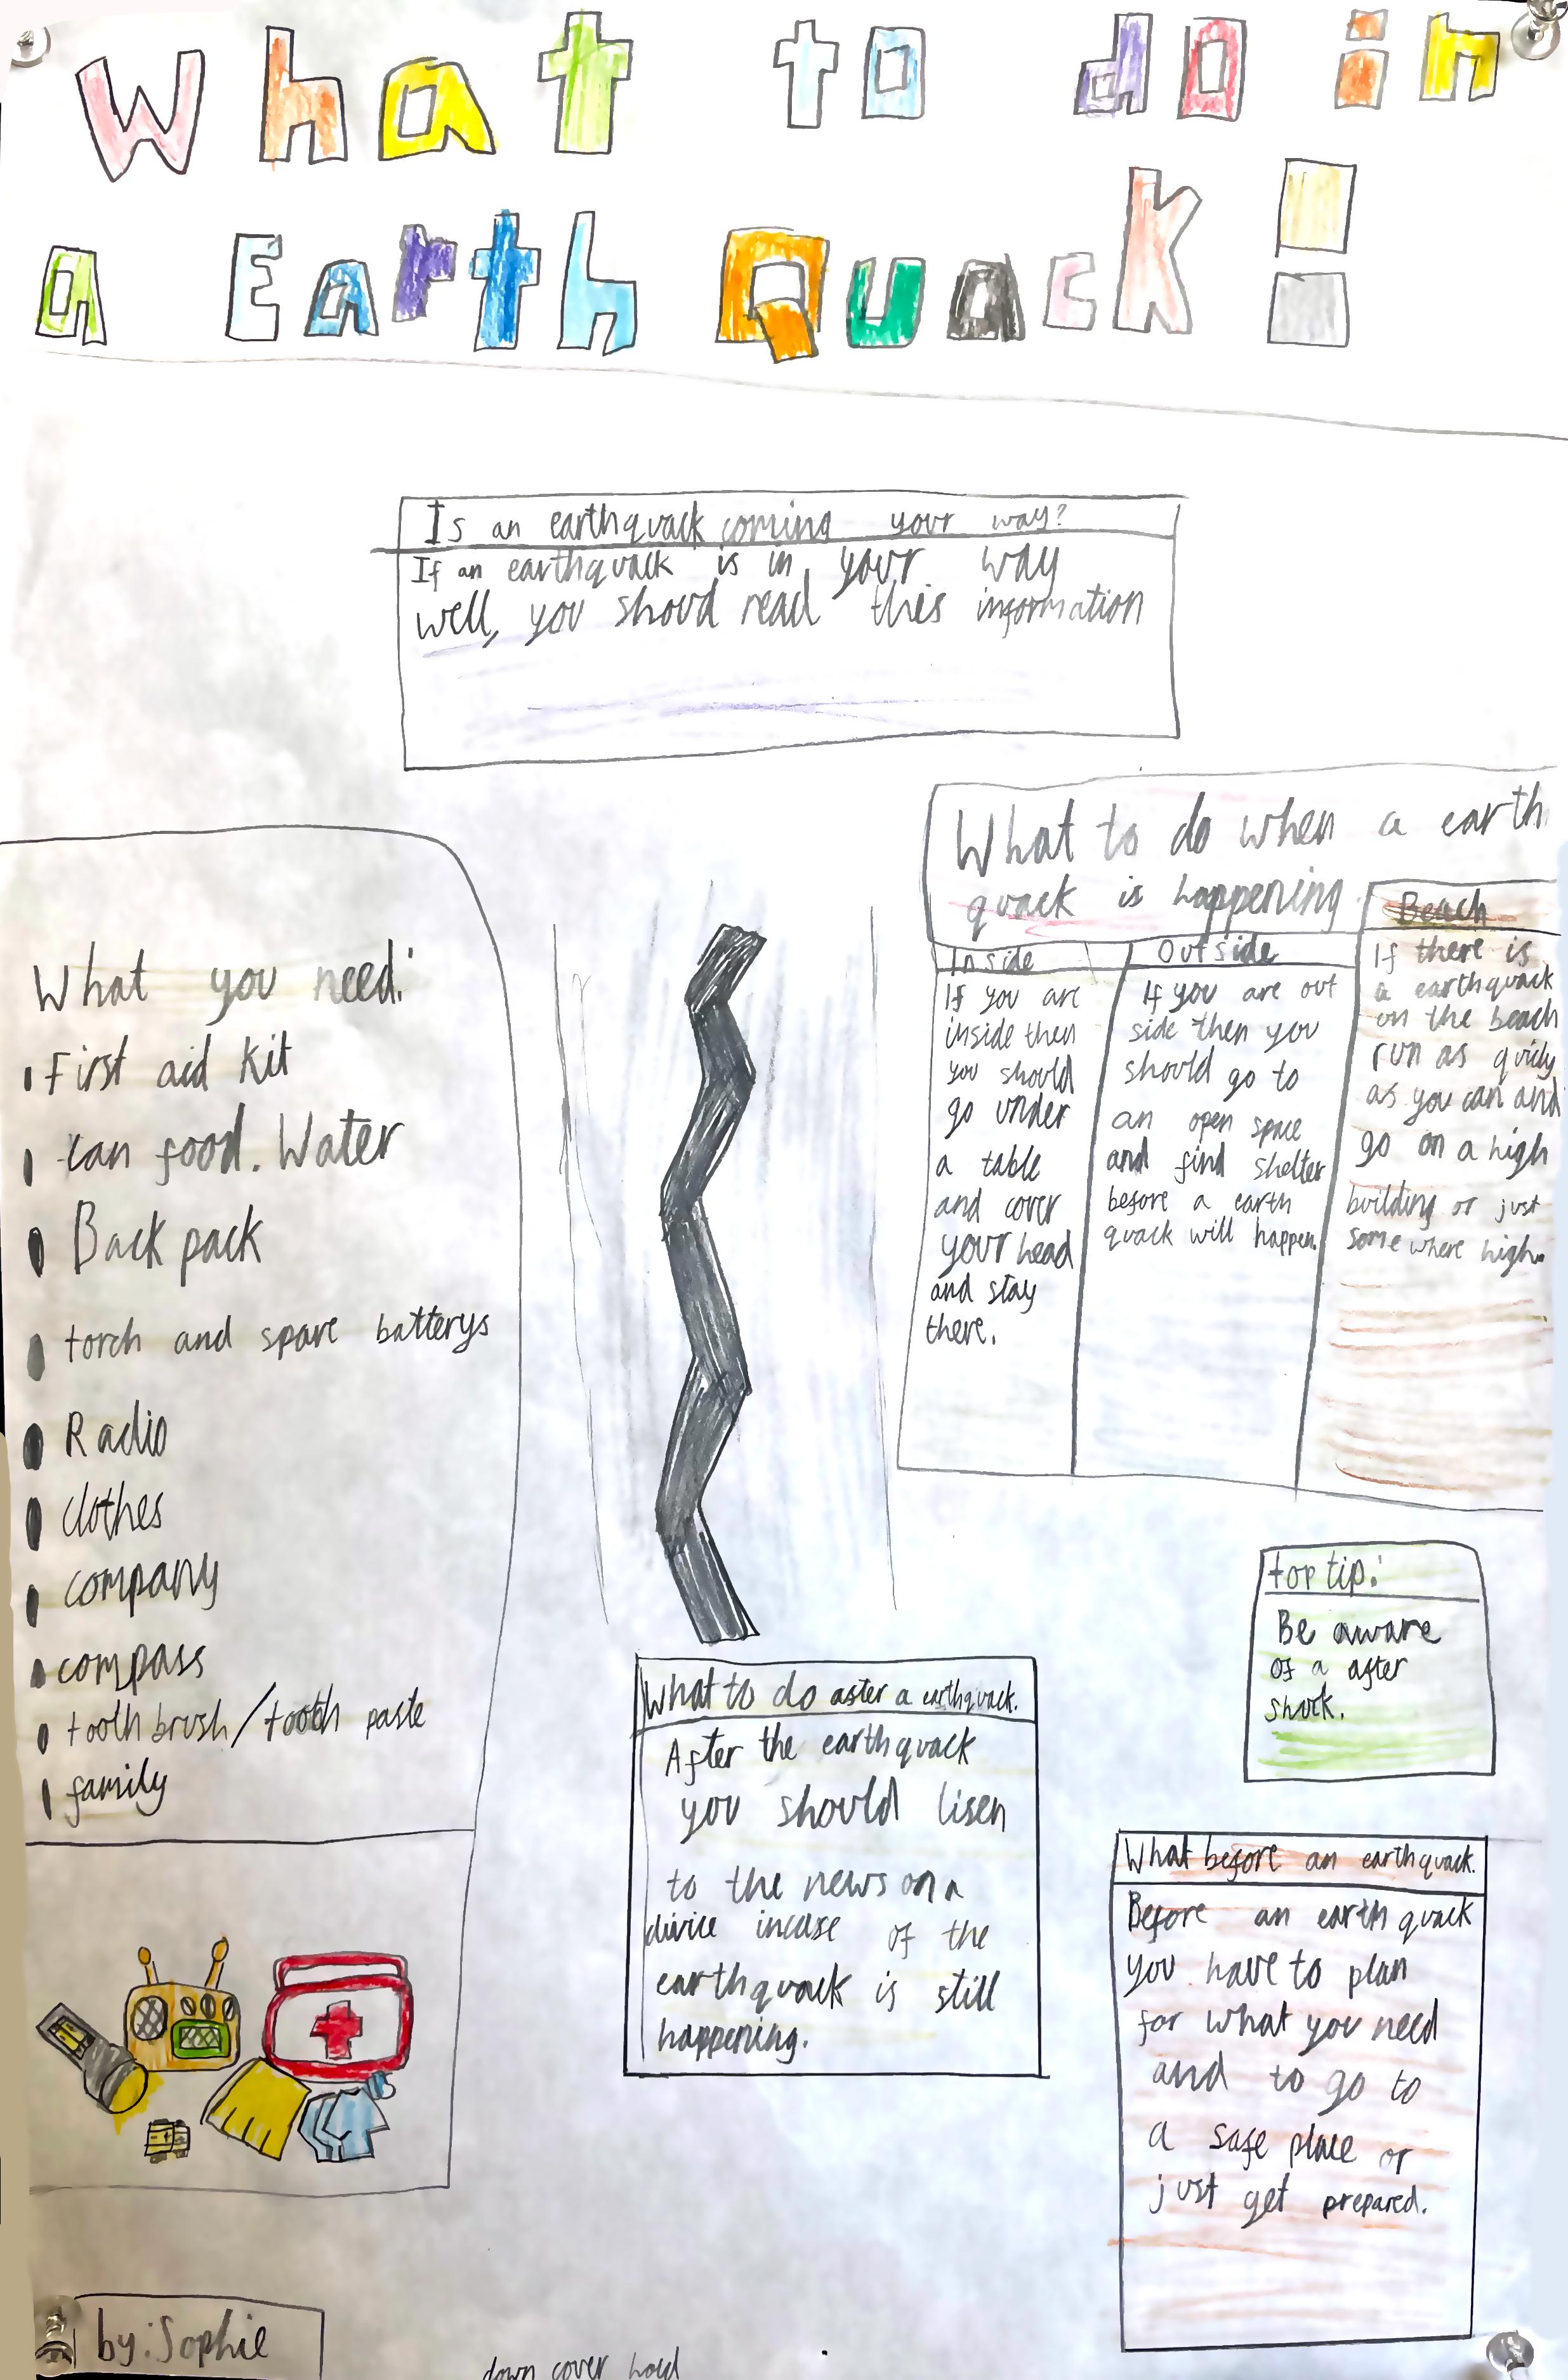 What to do in
a EarthQuack!
Is an earthquack coming your way?
If an earthquack is in your way
well, you shoud read this information
What you need:
First aid Kit
can food. Water
Back pack
torch and spare batterys
Radio
clothes
company
compass
tooth brush/tooth paste
family
What to do when a earth
quack is happening
Inside
If you are
inside then
you should
go under
a table
and cover
your head
and stay
there.
Outside
If you are out
side then you
should go to
an open space
and find shelter
before a earth
quack will happen.
Beach
If there is
a earthquack
on the beach
run as quicly
as you can and
go on a high
building or just
some where high.
top tip:
Be aware
of a after
shock.
What to do after a earthquack.
After the earthquack
you should lisen
to the news on a
divice incase of the
earthquack is still
happening.
What before an earthquack.
Before an earthquack
you have to plan
for what you need
and to go to
a safe place or
just get prepared.
by: Sophie
down cover hold